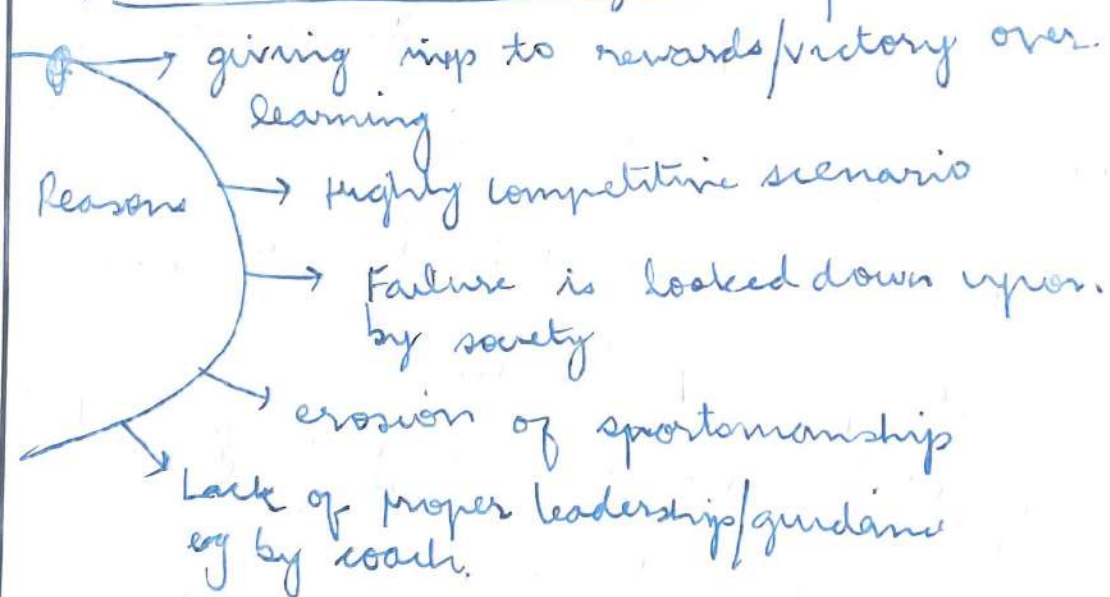 giving imp to rewards/victory over
learning
Reasons
Highly competitive scenario
Failure is looked down upon.
by society
erosion of sportsmanship
Lack of proper leadership/guidance
eg by coach.